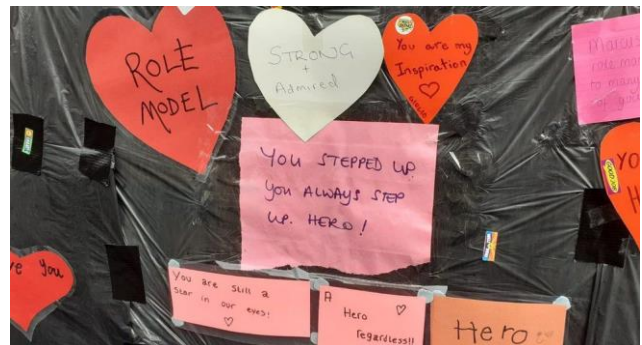 ROLE
MODEL
STRONG
+
Admired
You are my
Inspiration
Marcus
role mo
to many
YOU STEPPED UP.
YOU ALWAYS STEP
UP. HERO!
YO
H
ve you
You are still a
star in our eyes!
A
Hero
regardless!!
Hero